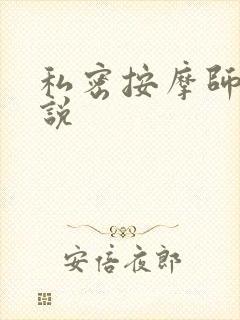 私密按摩師
說
安倍夜郎